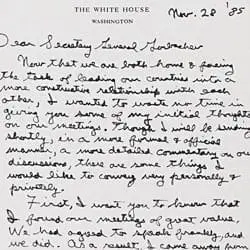 THE WHITE HOUSE
WASHINGTON
Nov. 28 '85
Dear Secretary General Gorbachev
Now that we are both home & facing
the task of leading our countries into a
more constructive relationship with each
other, I wanted to waste no time in
giving you some of my initial thoughts
on our meetings. Though I will be sending
shortly, in a more formal & official
manner, a more detailed commentary on our
discussions, there are some things I
would like to convey very personally &
privately.
First, I want you to know that
I found our meetings of great value.
We had agreed to speak frankly, and
we did. As a result, I came away from